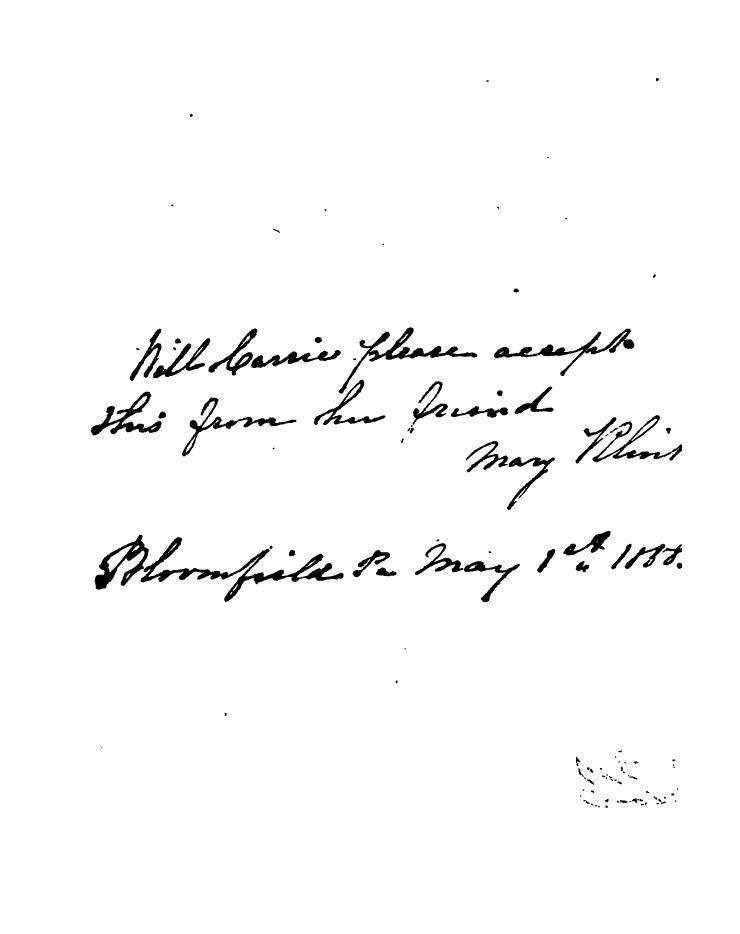 Will Carrie please accept
this from her friend
Mary
Bloomfield Pa May 1st